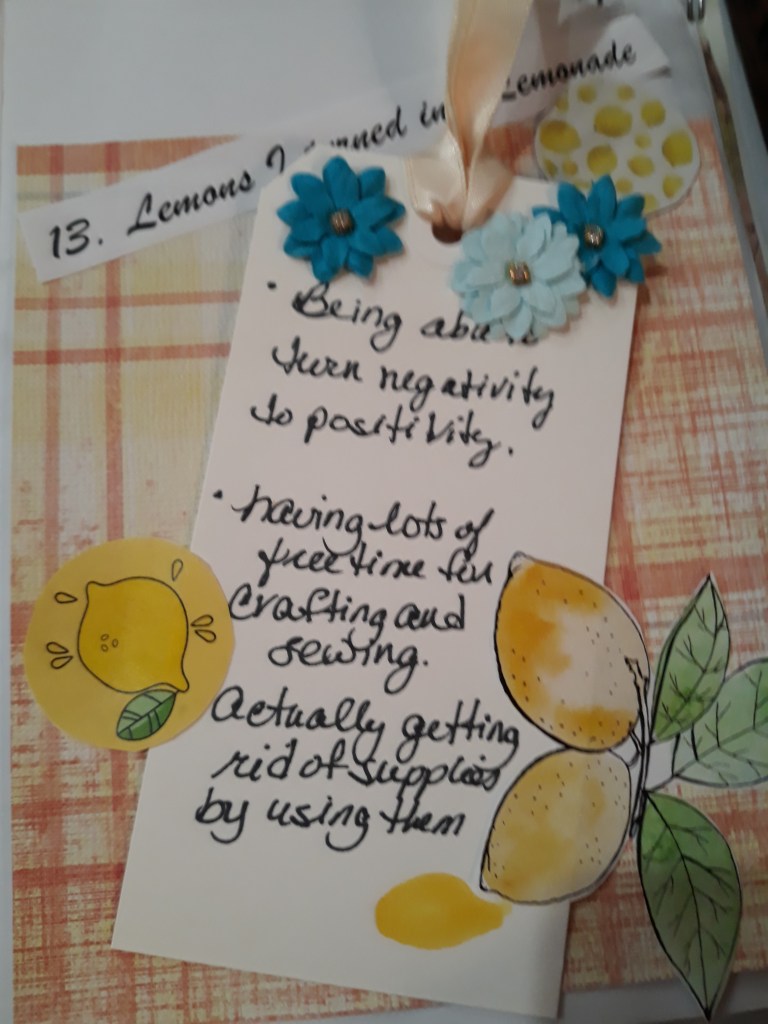 13. Lemons I Lemonade
· Being
turn negativity
to positivity.
· having lots of
free time for
Crafting and
sewing.
Actually getting
rid of supplies
by using them